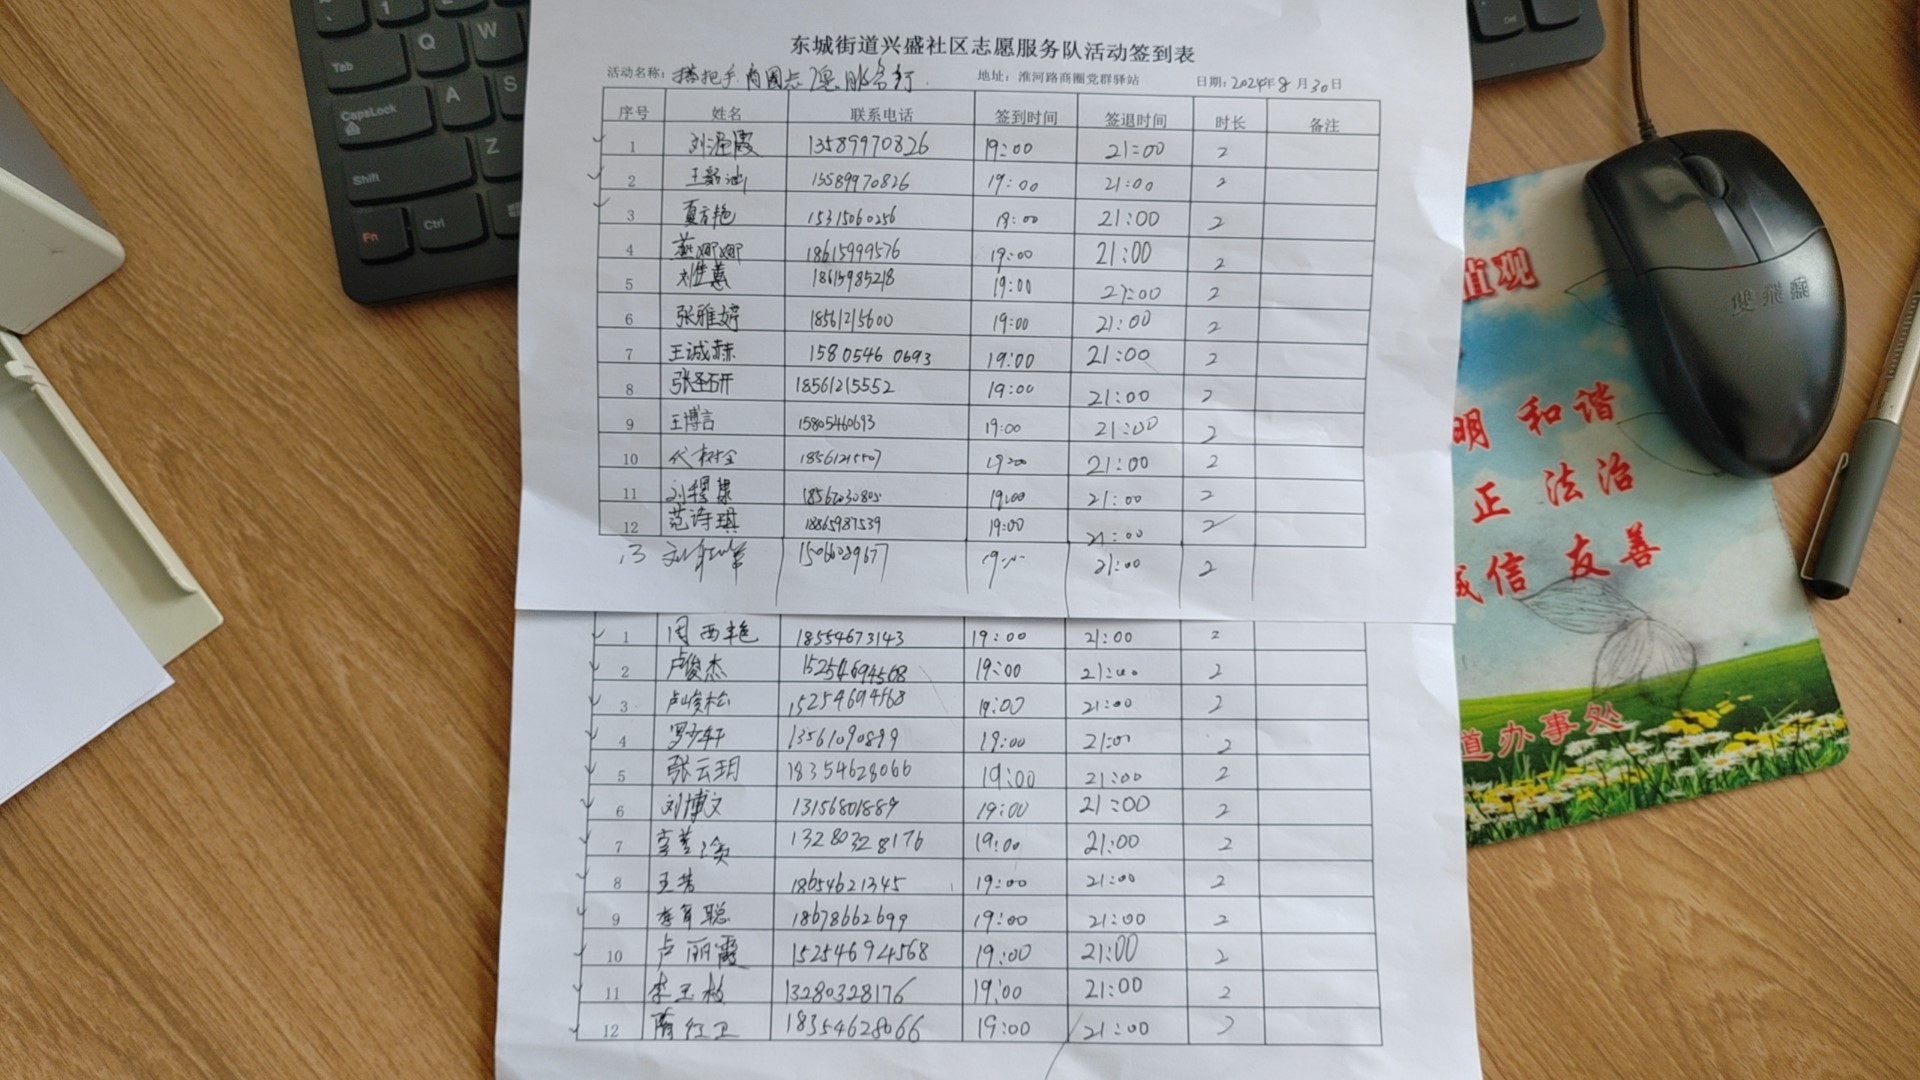 东城街道兴盛社区志愿服务队活动签到表
活动名称：搭把手商圈志愿服务行 地址：淮河路商圈党群驿站 日期：2024年8月30日
序号 姓名 联系电话 签到时间 签退时间 时长 备注
1 13589970826 19:00 21:00 2
2 13589970826 19:00 21:00 2
3 夏方艳 15315060256 19:00 21:00 2
4 燕娜娜 18615999576 19:00 21:00 2
5 18615985218 19:00 21:00 2
6 张雅婷 18561215600 19:00 21:00 2
7 王诚赫 15805460693 19:00 21:00 2
8 张圣研 18561215552 19:00 21:00 2
9 王博言 15805460693 19:00 21:00 2
10 代树全 19:00 21:00 2
11 19:00 21:00 2
12 范诗琪 18865987539 19:00 21:00 2
13 21:00 2
1 周西艳 18554673143 19:00 21:00 2
2 卢俊杰 15254694568 19:00 21:00 2
3 卢俊松 15254694568 19:00 21:00 2
4 罗少轩 13561090899 19:00 21:00 2
5 张云玥 18354628066 19:00 21:00 2
6 刘博文 13156801889 19:00 21:00 2
7 13280328176 19:00 21:00 2
8 王芳 18654621345 19:00 21:00 2
9 18678662699 19:00 21:00 2
10 卢丽霞 15254694568 19:00 21:00 2
11 李玉枝 13280328176 19:00 21:00 2
12 隋红卫 18354628066 19:00 21:00 2
Q W
Tab
A S
CapsLock
Z
Shift
Fn Ctrl
Del
双飛燕
值观
明 和谐
正 法治
诚信 友善
道办事处